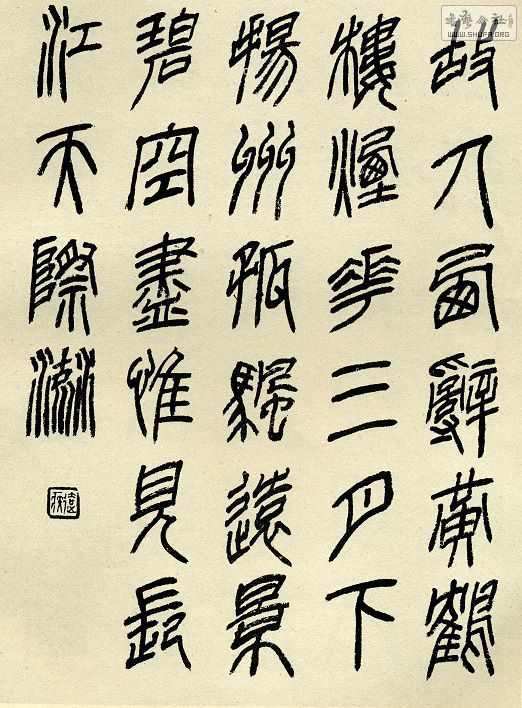 故人西辭黃鶴
樓煙華三月下
揚州孤颿遠景
碧空盡惟見長
江天際流
WWW.SHUFA.ORG